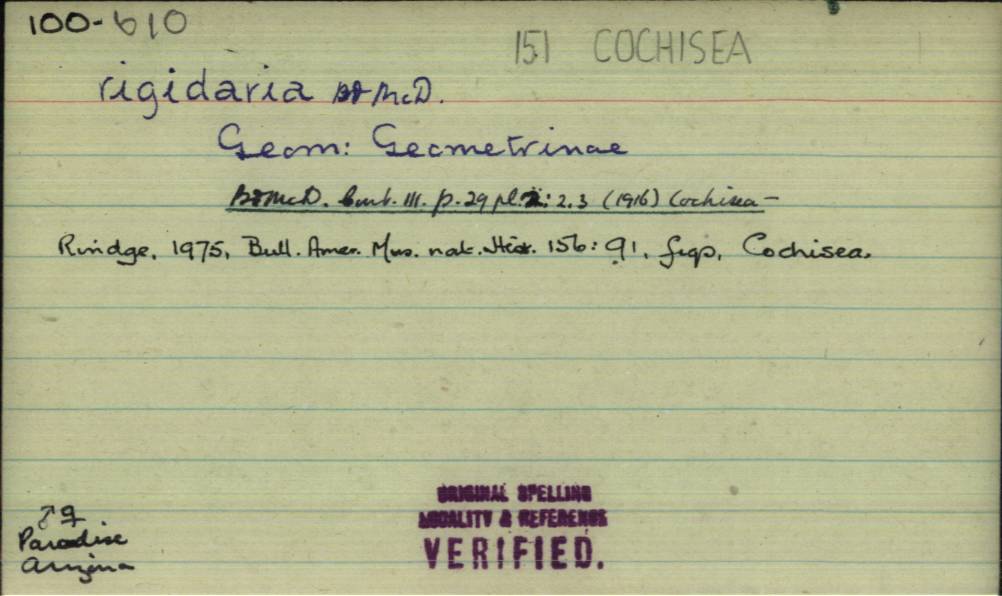 100-610
151 COCHISEA
rigidaria B&McD.
Geom: Geometrinae
B&McD. Contr. III. p.29 pl.2: 2.3 (1916) Cochisea-
Rindge, 1975, Bull. Amer. Mus. nat. Hist. 156: 91, figs, Cochisea.
♂ ♀
Paradise
Arizona
ORIGINAL SPELLING
LOCALITY & REFERENCE
VERIFIED.